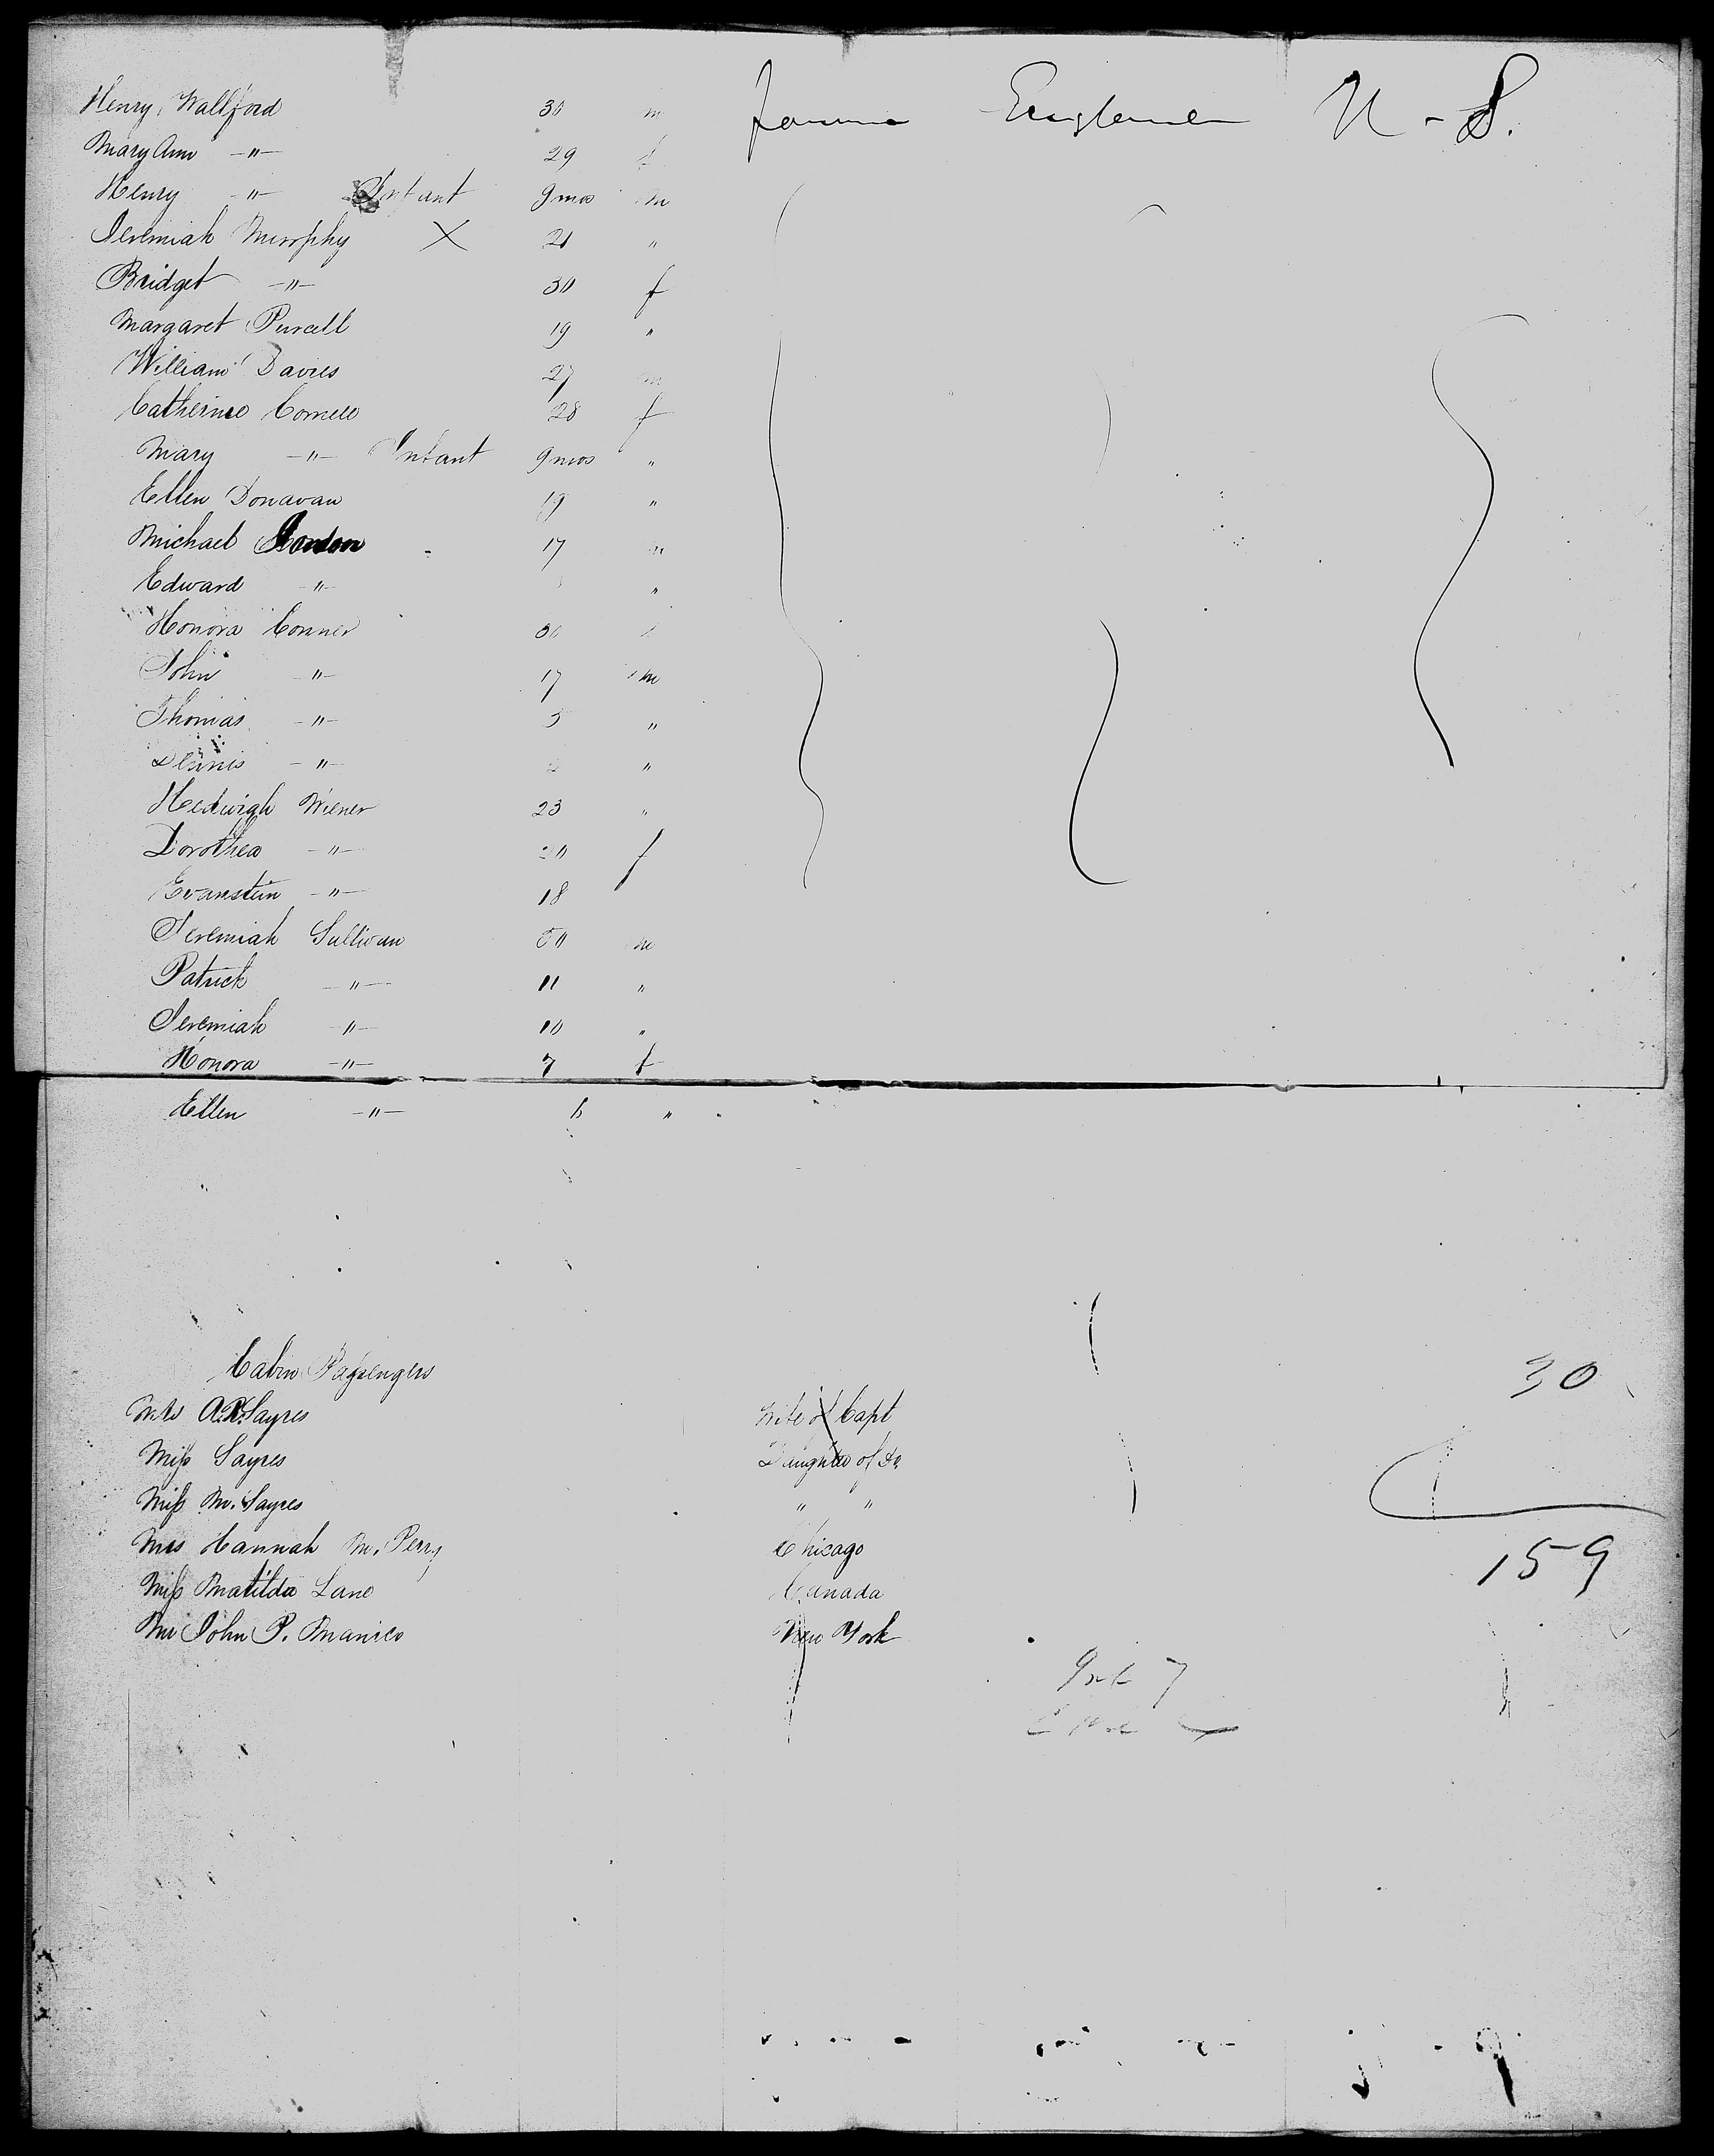 Henry Wallford 30 m Farmer England U-S.
Mary Ann -"- 29 f
Henry -"- Infant 9 mos m
Jeremiah Murphy X 21 "
Bridget -"- 30 f
Margaret Purcell 19 "
William Davies 27 m
Catherine Cornell 28 f
Mary -"- Infant 9 mos "
Ellen Donavan 19 "
Michael 17 m
Edward -"- "
Honora Conner 30
John -"- 17 m
Thomas -"- 5 "
Dennis -"- "
Hedwigh Wiener 23 "
Dorothea -"- 20 f
Evanstein -"- 18
Jeremiah Sullivan 50 m
Patrick -"- 11 "
Jeremiah -"- 10 "
Honora -"- 7 f
Ellen -"- "
Cabin Passengers 30
Mrs A.R. Sayres Wife of Capt
Miss Sayres Daughter of Do
Miss M. Sayres " "
Mrs Hannah M. Perry Chicago 159
Miss Matilda Lane Canada
Mr John P. Manico New York